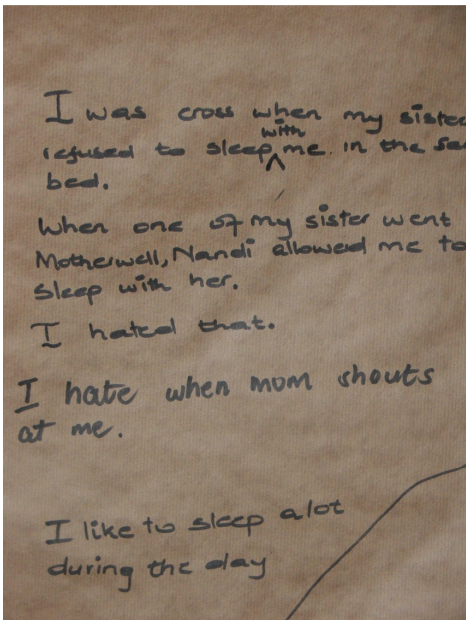 I was cross when my sister
refused to sleep with me in the
bed.
When one of my sister went
Motherwell, Nandi allowed me to
sleep with her.
I hated that.
I hate when mom shouts
at me.
I like to sleep alot
during the day